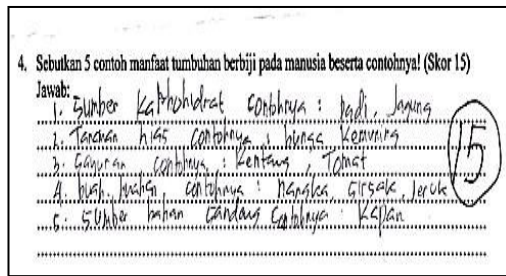 4. Sebutkan 5 contoh manfaat tumbuhan berbiji pada manusia beserta contohnya! (Skor 15)
Jawab:
1. Sumber Karbohidrat Contohnya : padi, Jagung
2. Tanaman hias contohnya : bunga Kemuning
3. Sayuran contohnya : Kentang, Tomat
4. buah-buahan contohnya : nangka, sirsak, Jeruk
5. Sumber bahan Sandang Contohnya : Kapan
15